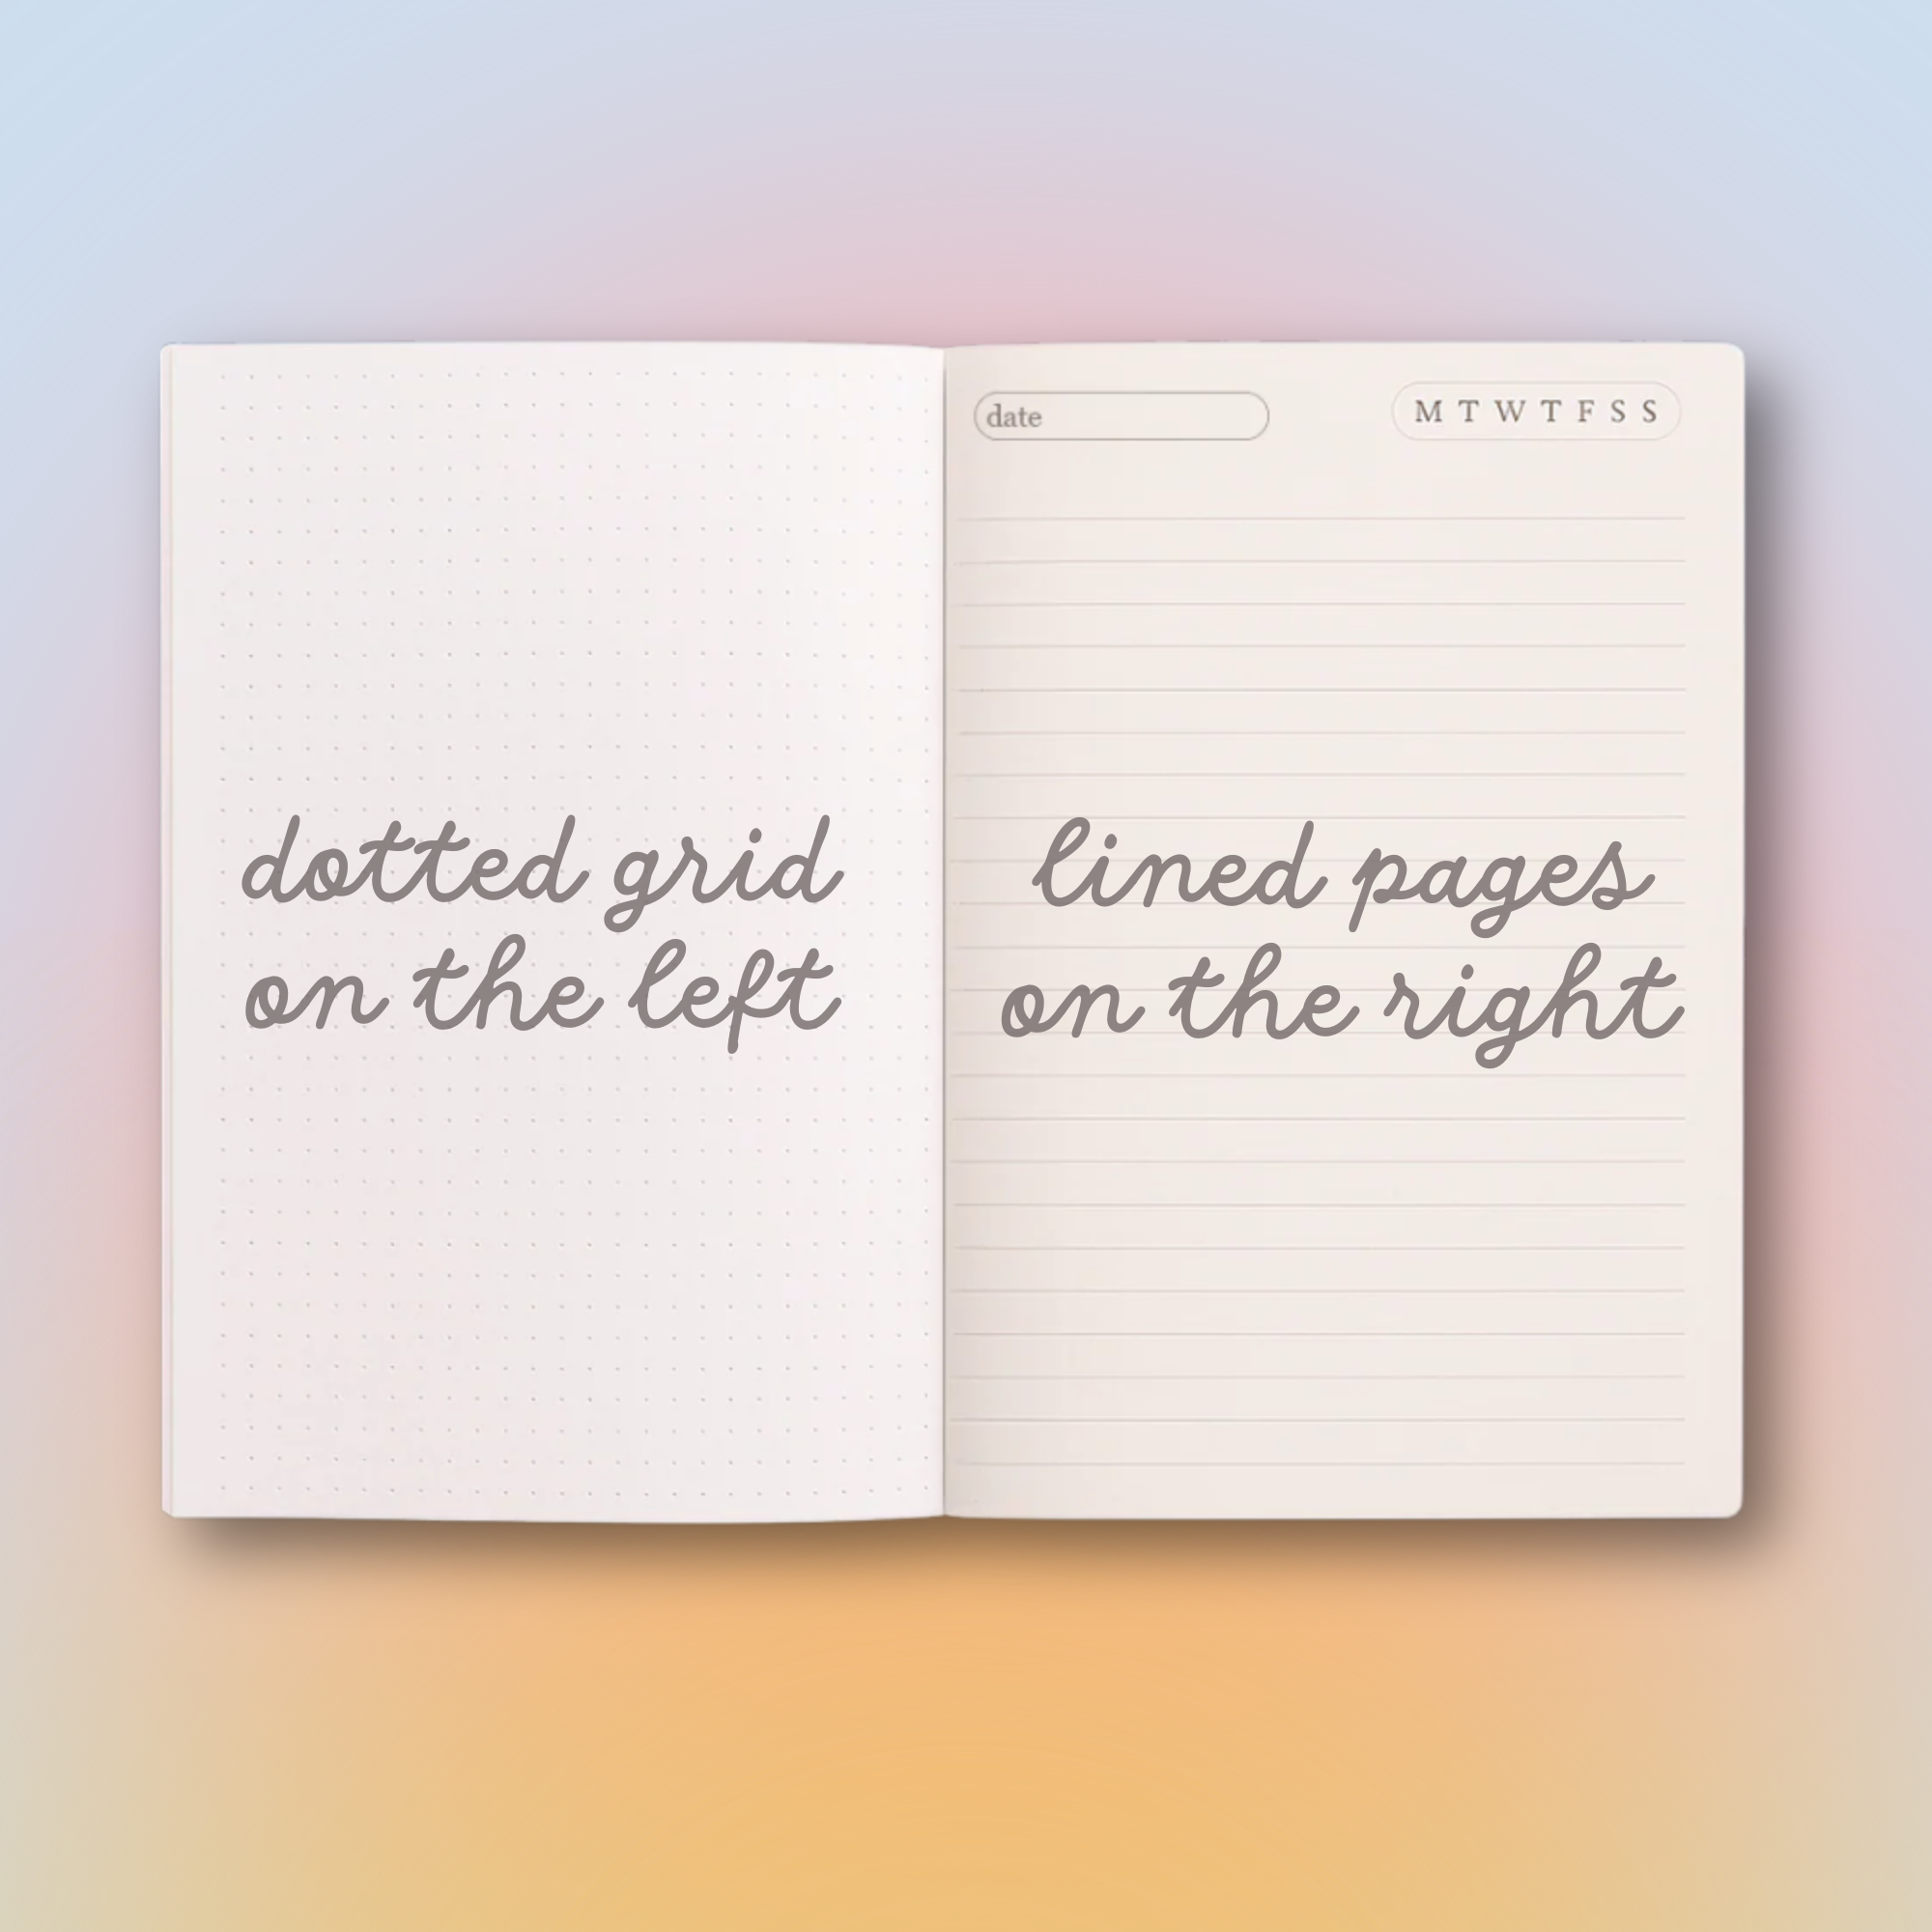 date
M T W T F S S
dotted grid
on the left
lined pages
on the right